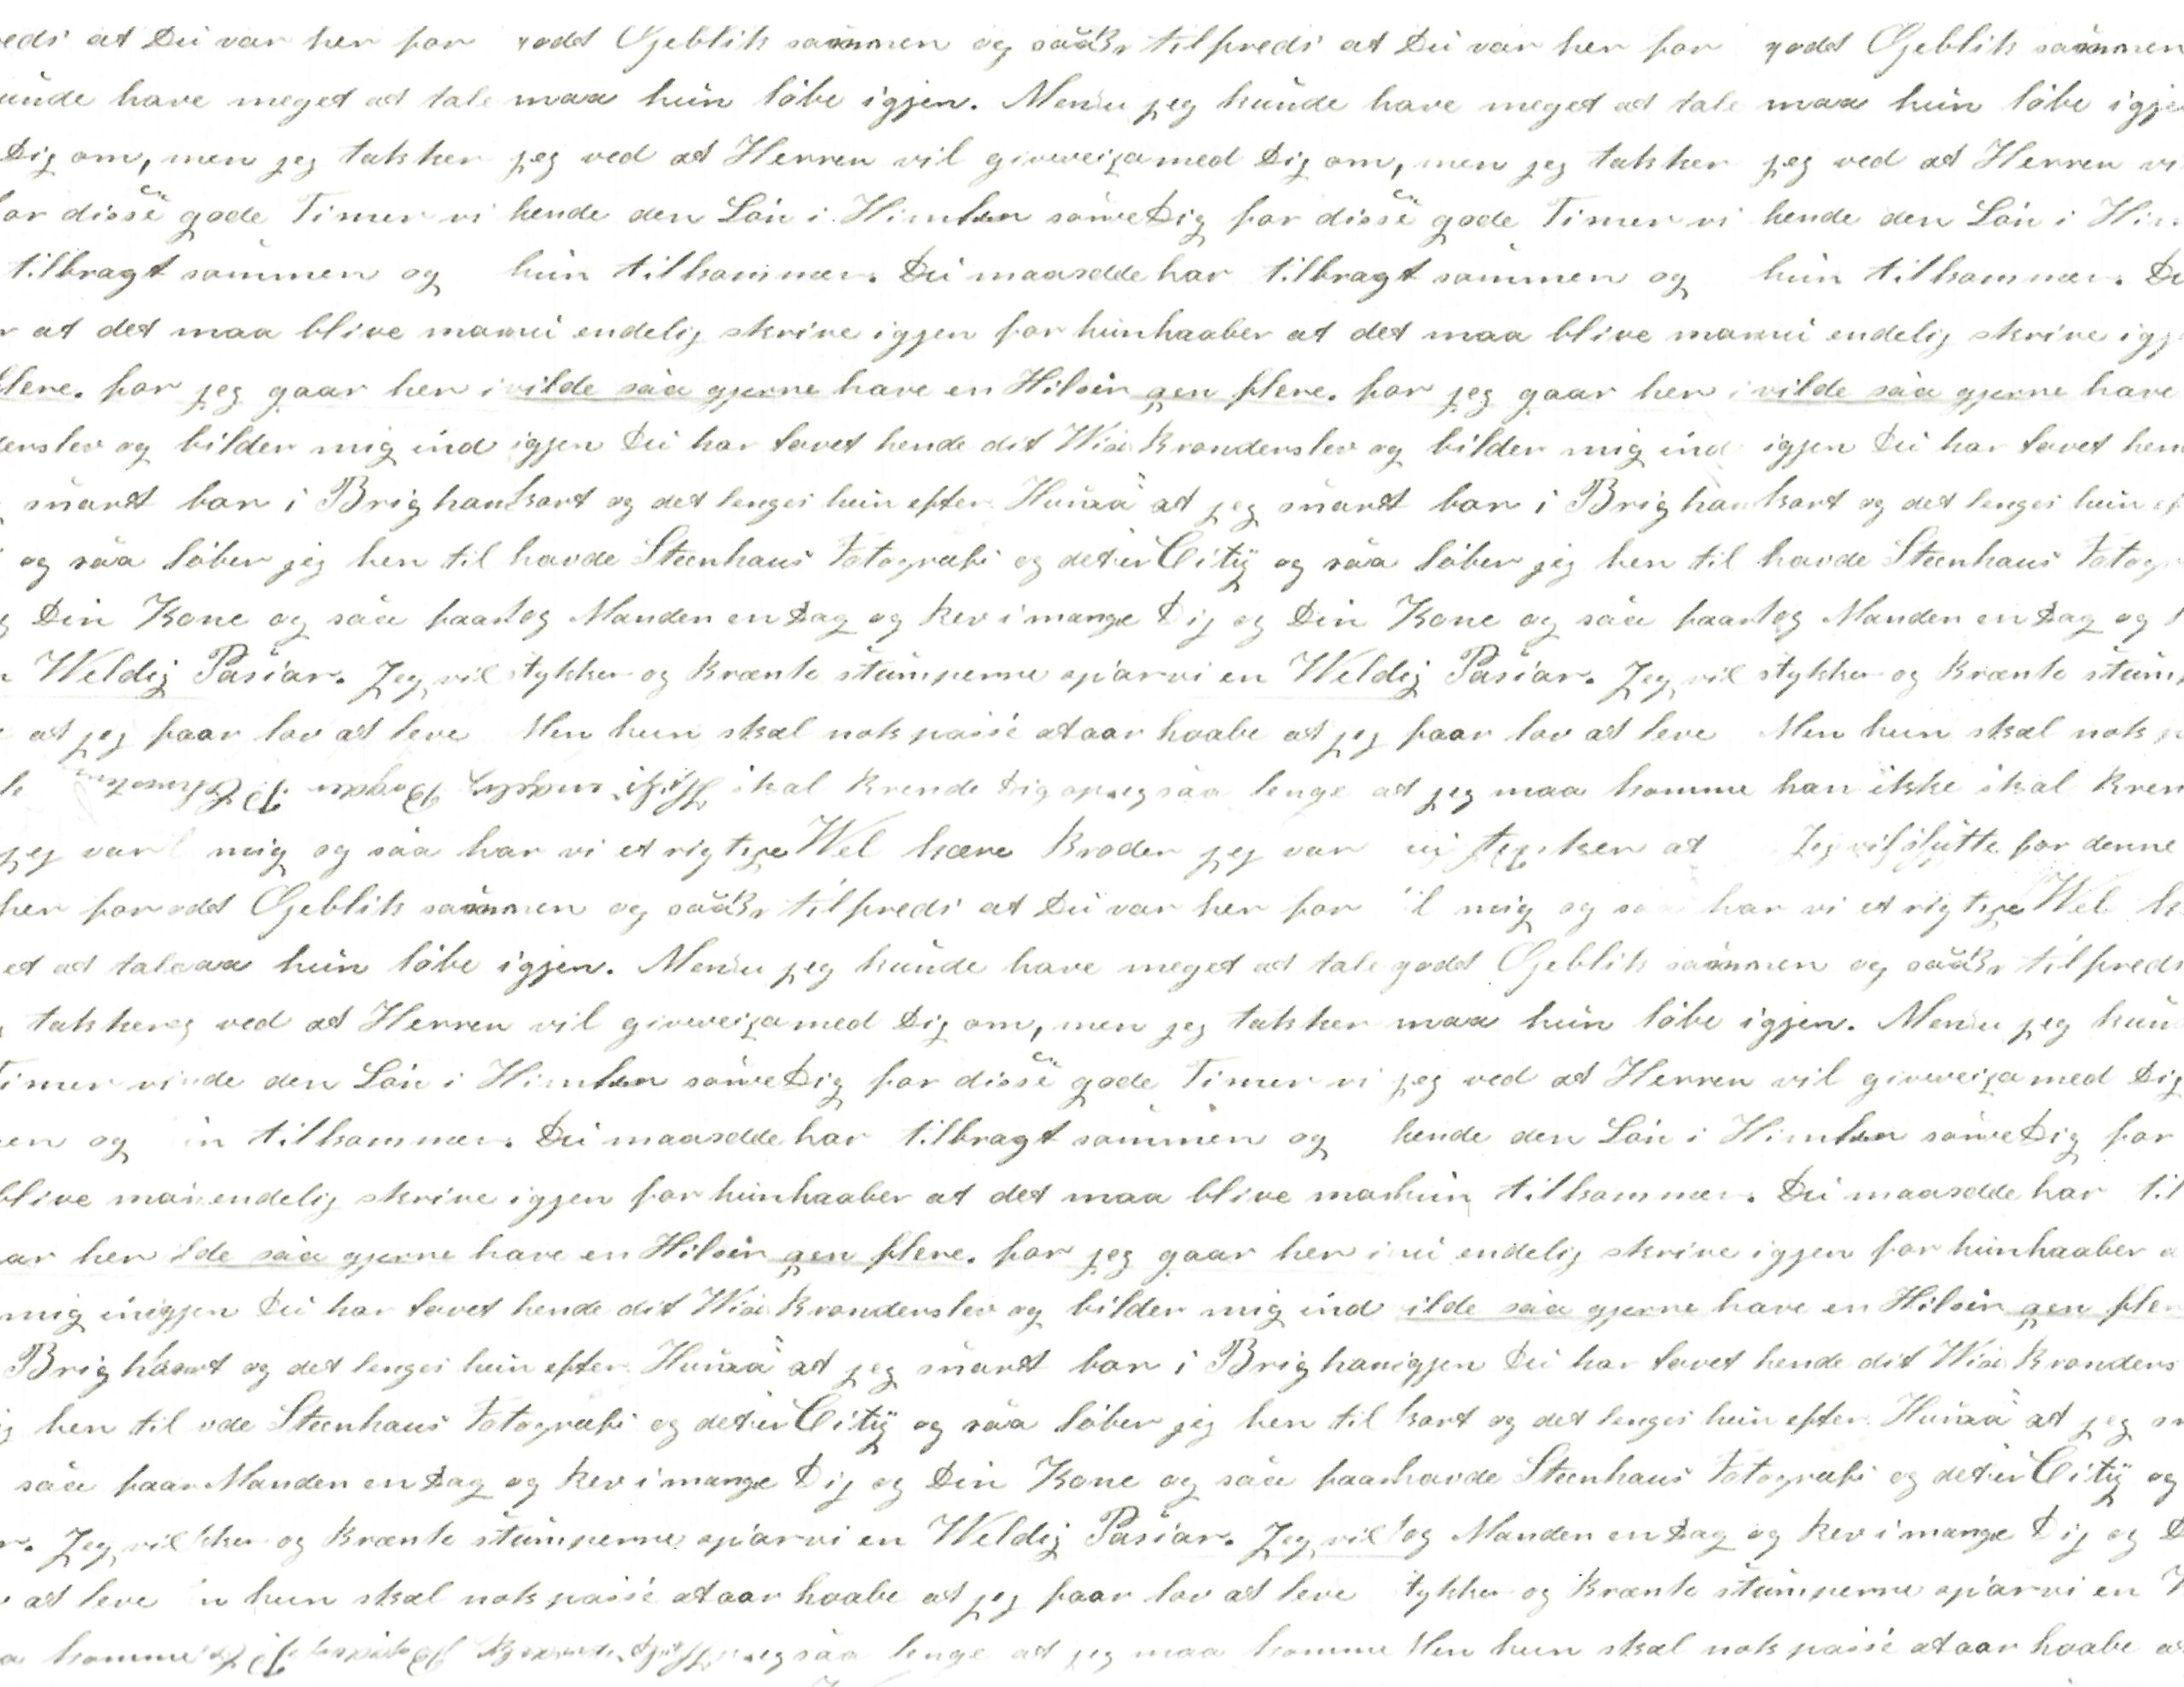 eds at Du var her for godt Øjeblik sammen og saa tilfreds at Du var her for godt Øjeblik sammen
unde have meget at tale maa hun løbe igjen. Men jeg kunde have meget at tale maa hun løbe igje
Dig om, men jeg takker jeg ved at Herren vil give med Dig om, men jeg takker jeg ved at Herren vi
for disse gode Timer vi hende den Løn i Himlen Dig for disse gode Timer vi hende den Løn i Him
tilbragt sammen og hun tilkommer. Du maa har tilbragt sammen og hun tilkommer. Du
r at det maa blive endelig skrive igjen for hun haaber at det maa blive endelig skrive igj
flere. for jeg gaar her i vilde saa gjerne have en Hilsen gen flere. for jeg gaar her i vilde saa gjerne have
derslev og bilder mig ind igjen Du har lovet hende dit og bilder mig ind igjen Du har lovet hen
snart bor i Brigham kort og det lenges hun efter at jeg snart bor i Brigham kort og det lenges hun ef
og saa løber jeg hen til havde Steenhaus Fotografi og City og saa løber jeg hen til havde Steenhaus Fotogr
g Din Kone og saa faar tog Manden en Dag og rev i mange Dig og Din Kone og saa faar tog Manden en Dag og
Weldig Pasiar. Jeg vil stykker og brænte stumperne op en Weldig Pasiar. Jeg vil stykker og brænte stum
at jeg faar lov at leve Men hun skal nok passe at haabe at jeg faar lov at leve Men hun skal nok
skal brende Dig op saa lenge at jeg maa komme han ikke skal bren
jeg var mig og saa har vi et rigtig Wel kære Broder jeg var at Jeg vil slutte for denne
her for odt Øjeblik sammen og saa tilfreds at Du var her for il mig og saa har vi et rigtig Wel k
et at tale aa hun løbe igjen. Men jeg kunde have meget at tale godt Øjeblik sammen og saa tilfreds
takker eg ved at Herren vil give med Dig om, men jeg takker maa hun løbe igjen. Men jeg kun
Timer vi nde den Løn i Himlen Dig for disse gode Timer vi jeg ved at Herren vil give med Dig
en og un tilkommer. Du maa har tilbragt sammen og hende den Løn i Himlen Dig for
blive endelig skrive igjen for hun haaber at det maa blive hun tilkommer. Du maa har til
ar her ilde saa gjerne have en Hilsen gen flere. for jeg gaar her i nu endelig skrive igjen for hun haaber a
mig in igjen Du har lovet hende dit og bilder mig ind ilde saa gjerne have en Hilsen gen fler
Brigh kort og det lenges hun efter at jeg snart bor i Brigham igjen Du har lovet hende dit
g hen til vde Steenhaus Fotografi og City og saa løber jeg hen til kort og det lenges hun efter at jeg sn
saa faar Manden en Dag og rev i mange Dig og Din Kone og saa faar havde Steenhaus Fotografi og City og
r. Jeg vil kker og brænte stumperne op en Weldig Pasiar. Jeg vil tog Manden en Dag og rev i mange Dig og D
at leve n hun skal nok passe at haabe at jeg faar lov at leve tykker og brænte stumperne op en W
a komme saa lenge at jeg maa komme Men hun skal nok passe at haabe a